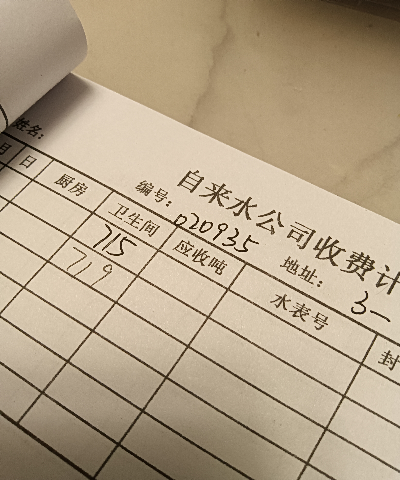 自来水公司收费计
姓名: 编号: 020935 地址: 3-
月 日 厨房 卫生间 应收吨 水表号 封
715
719